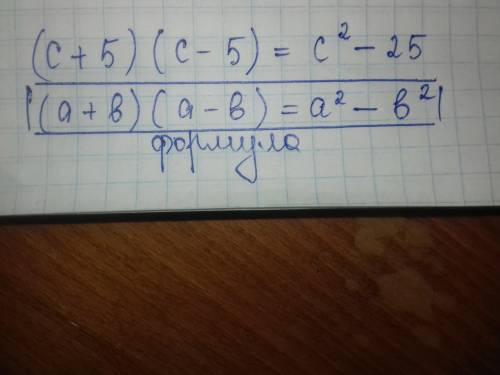 (c + 5) (c - 5) = c² - 25
|(a + в) (a - в) = a² - в²|
формула